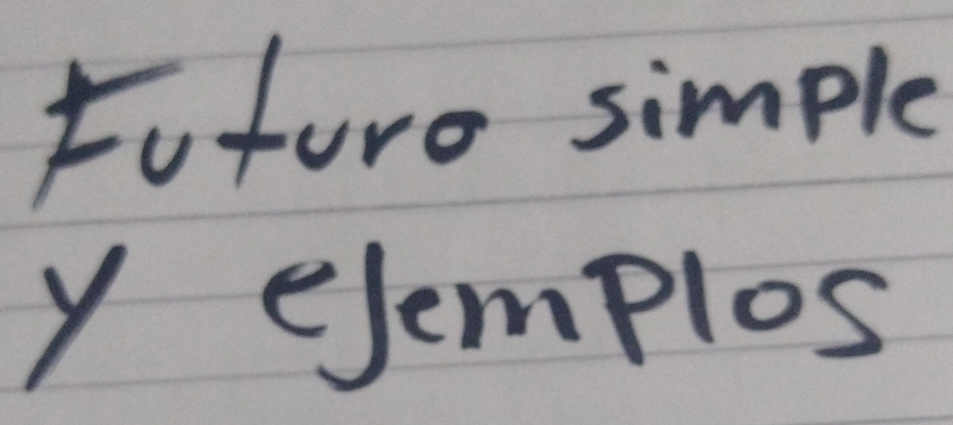 Futuro simple
y ejemplos